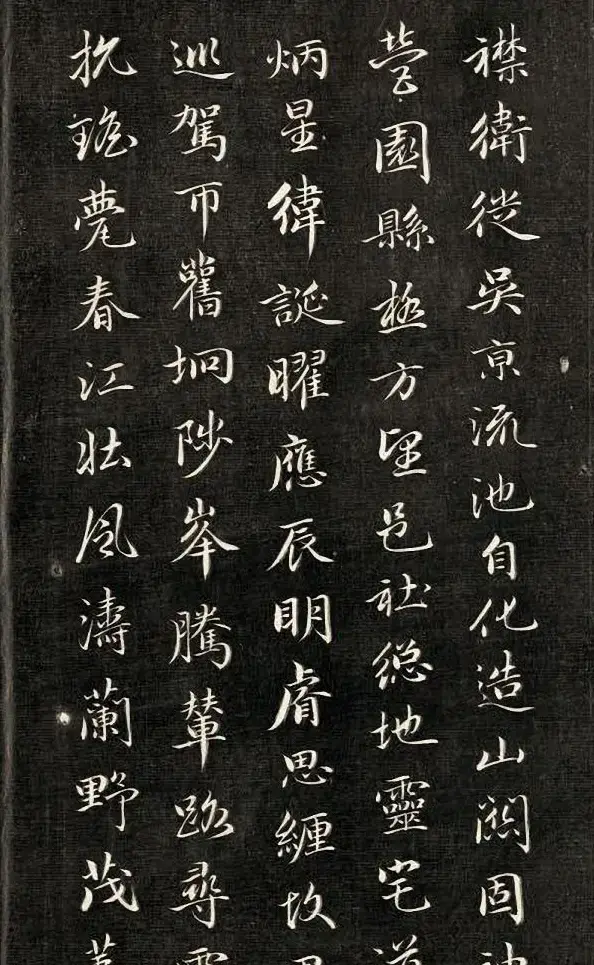 襟衛徙吳京流池自化造山關固
營園縣極方望邑社總地靈宅
炳星緯誕曜應辰明睿思纏故
巡駕帀舊坰陟峯騰輦路尋
抗瑤甍春江壯風濤蘭野茂